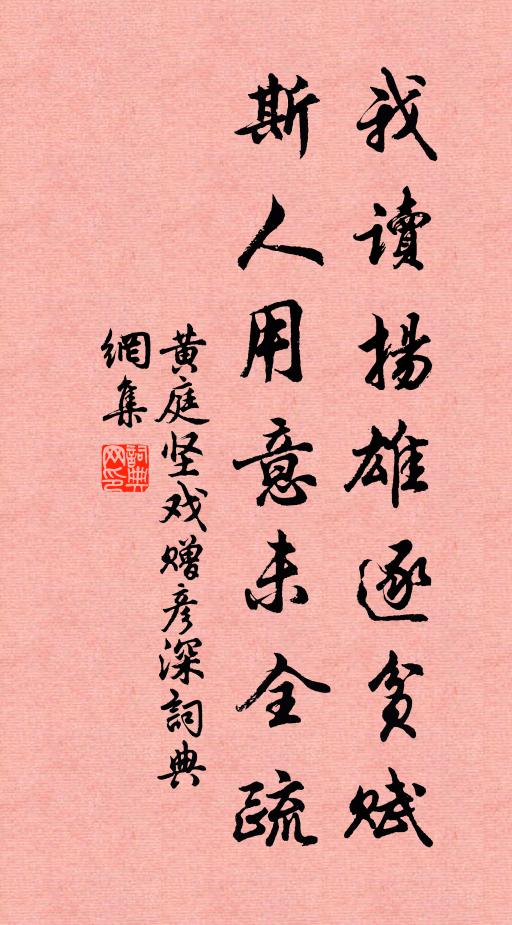 我讀揚雄逐貧賦
斯人用意未全疏
黄庭坚戏赠彦深詞典
網集
詞典网印